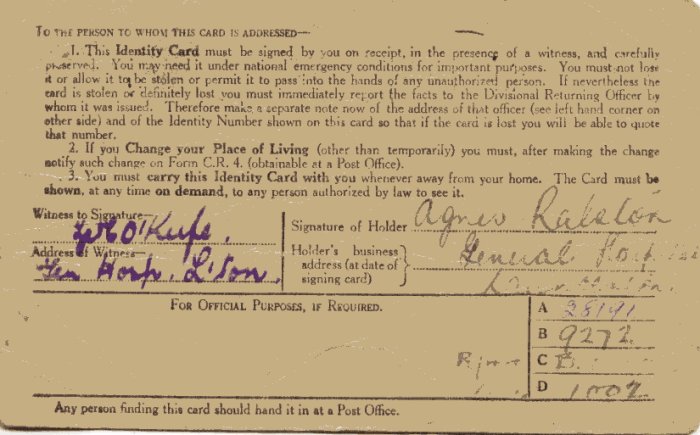 TO THE PERSON TO WHOM THIS CARD IS ADDRESSED—
1. This Identity Card must be signed by you on receipt, in the presence of a witness, and carefully
preserved. You may need it under national emergency conditions for important purposes. You must not lose
it or allow it to be stolen or permit it to pass into the hands of any unauthorized person. If nevertheless the
card is stolen or definitely lost you must immediately report the facts to the Divisional Returning Officer by
whom it was issued. Therefore make a separate note now of the address of that officer (see left hand corner on
other side) and of the Identity Number shown on this card so that if the card is lost you will be able to quote
that number.
2. If you Change your Place of Living (other than temporarily) you must, after making the change
notify such change on Form C.R. 4. (obtainable at a Post Office).
3. You must carry this Identity Card with you whenever away from your home. The Card must be
shown, at any time on demand, to any person authorized by law to see it.
Witness to Signature
Signature of Holder Agnes Ralston
Address of Witness
Gen Hosp. L'ton.
Holder's business
address (at date of
signing card)
General Hosp
FOR OFFICIAL PURPOSES, IF REQUIRED.
A 28191
B 9272
C B
D 1002
Any person finding this card should hand it in at a Post Office.